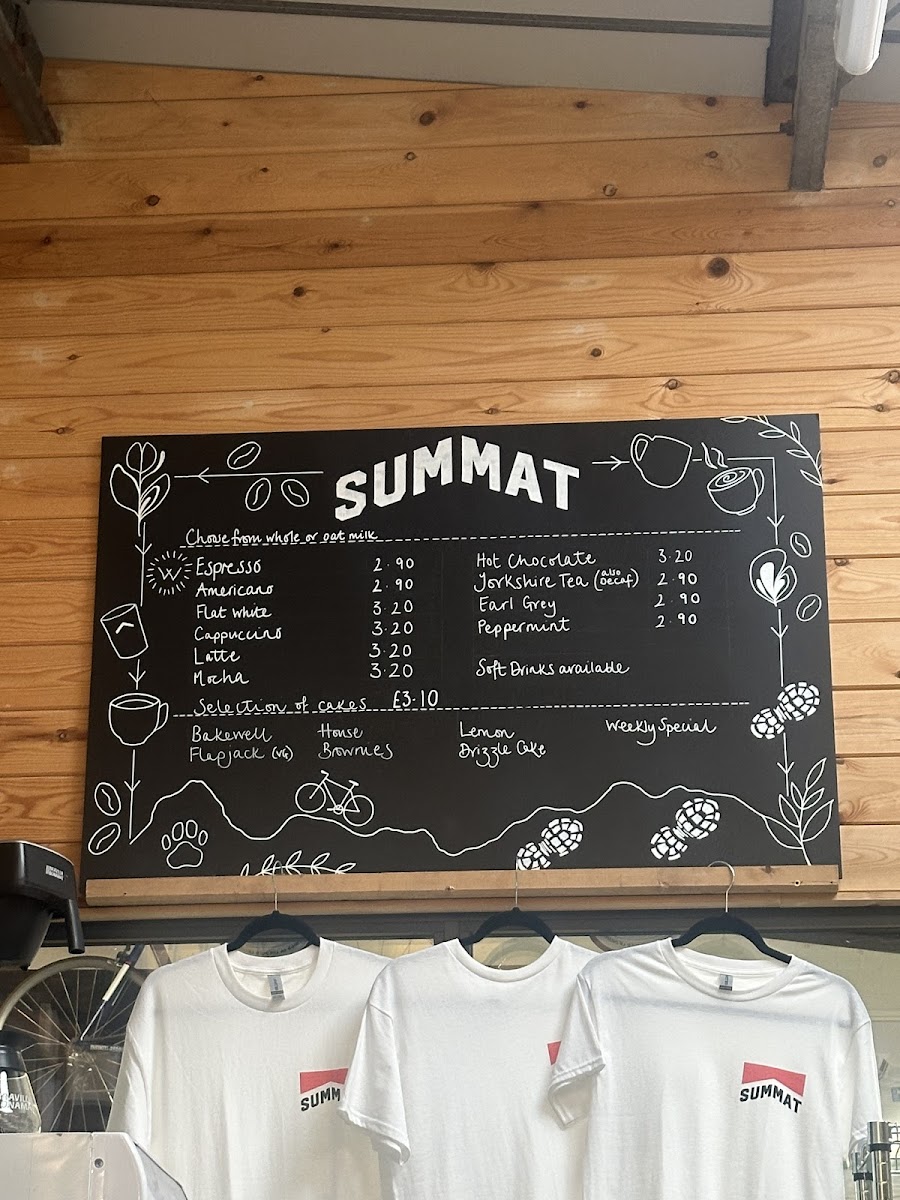 SUMMAT
Choose from whole or oat milk
W
Espresso 2.90
Americano 2.90
Flat white 3.20
Cappuccino 3.20
Latte 3.20
Mocha 3.20
Hot Chocolate 3.20
Yorkshire Tea (also Decaf) 2.90
Earl Grey 2.90
Peppermint 2.90
Soft Drinks available
Selection of cakes £3.10
Bakewell
Flapjack (VG)
House
Brownies
Lemon
Drizzle Cake
Weekly Special
SUMM
SUMMAT